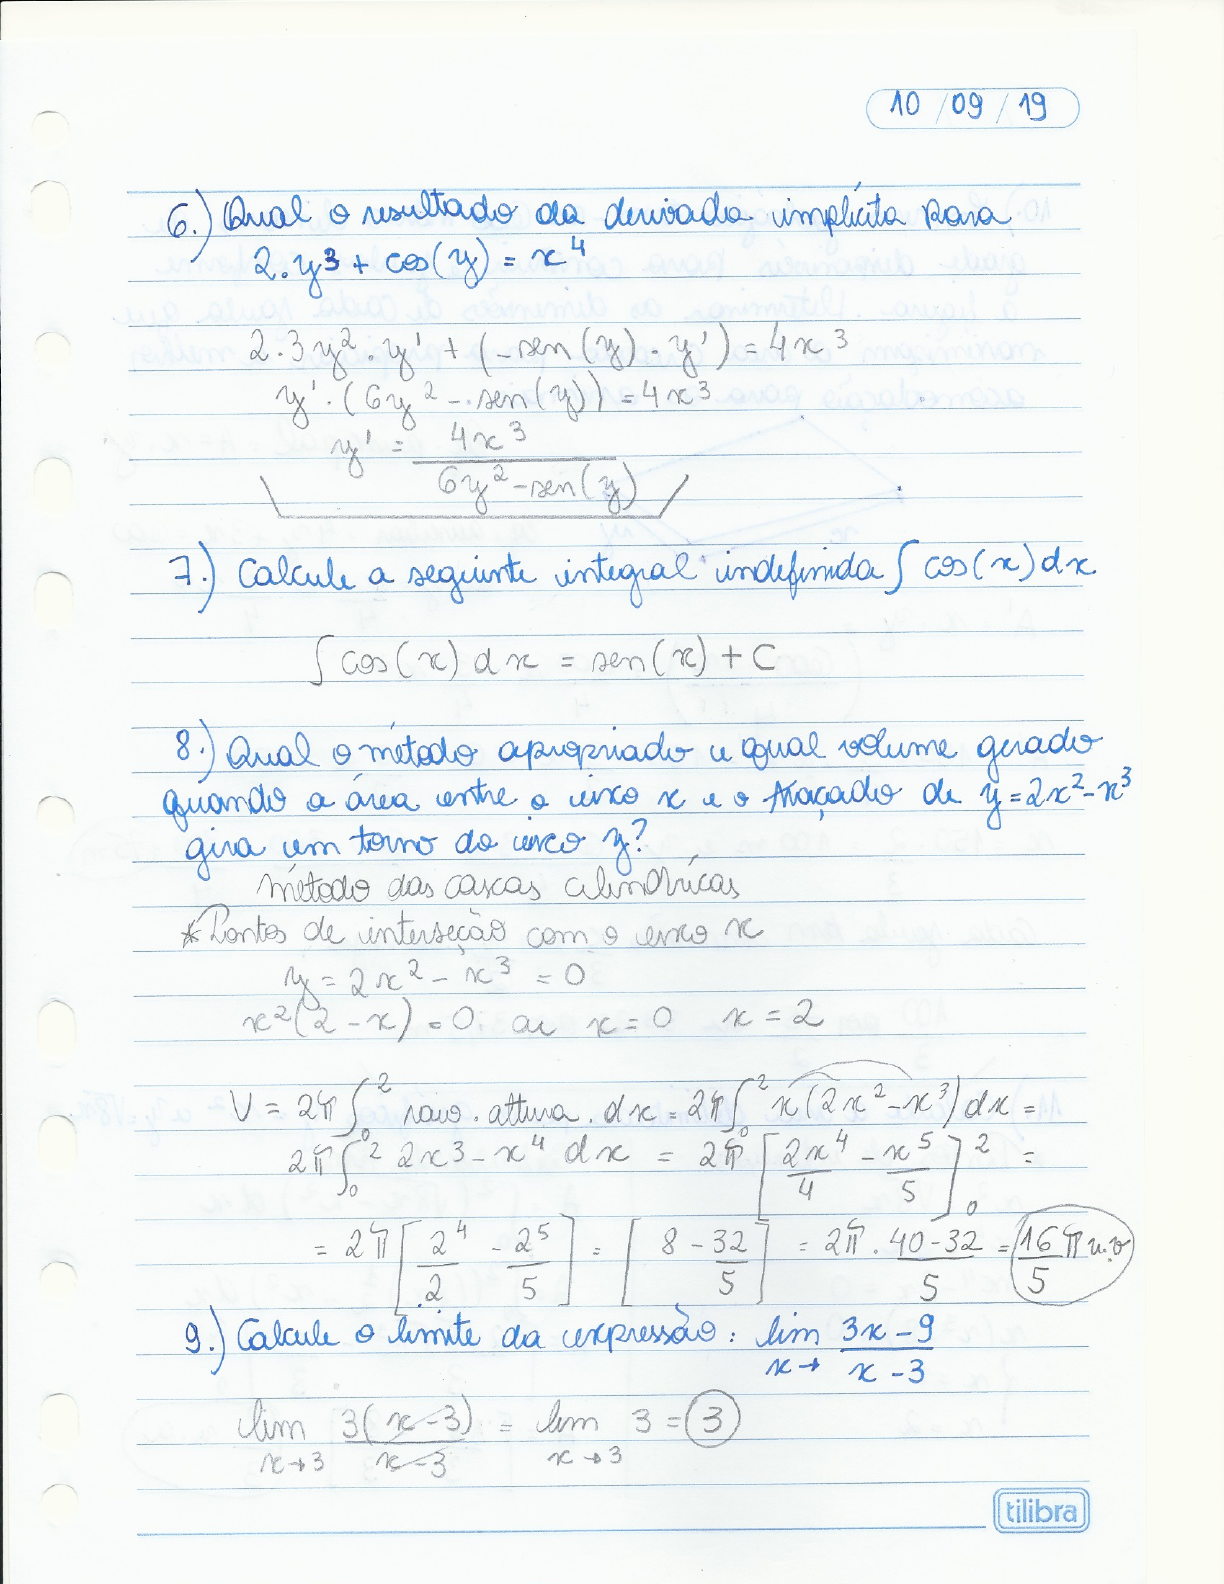 10/09/19
6.) Qual o resultado da derivada implícita para
2.y³ + cos(y) = x⁴
2.3y².y' + (-sen(y).y') = 4x³
y'.(6y² - sen(y)) = 4x³
y' = 4x³ / 6y² - sen(y)
7.) Calcule a seguinte integral indefinida ∫ cos(x) dx
∫ cos(x) dx = sen(x) + C
8.) Qual o método apropriado e qual volume gerado
quando a área entre o eixo x e o traçado de y = 2x² - x³
gira em torno do eixo y?
método das cascas cilíndricas
*Pontos de interseção com o eixo x
y = 2x² - x³ = 0
x²(2 - x) = 0. ou x = 0 x = 2
V = 2π∫₀² raio. altura. dx = 2π∫₀² x(2x² - x³) dx =
2π∫₀² 2x³ - x⁴ dx = 2π [2x⁴/4 - x⁵/5]₀² =
= 2π [2⁴/2 - 2⁵/5] = [8 - 32/5] = 2π . 40-32/5 = 16π/5 u.v
9.) Calcule o limite da expressão: lim x→ 3x - 9 / x - 3
lim x→3 3(x-3) / x-3 = lim x→3 3 = 3
tilibra